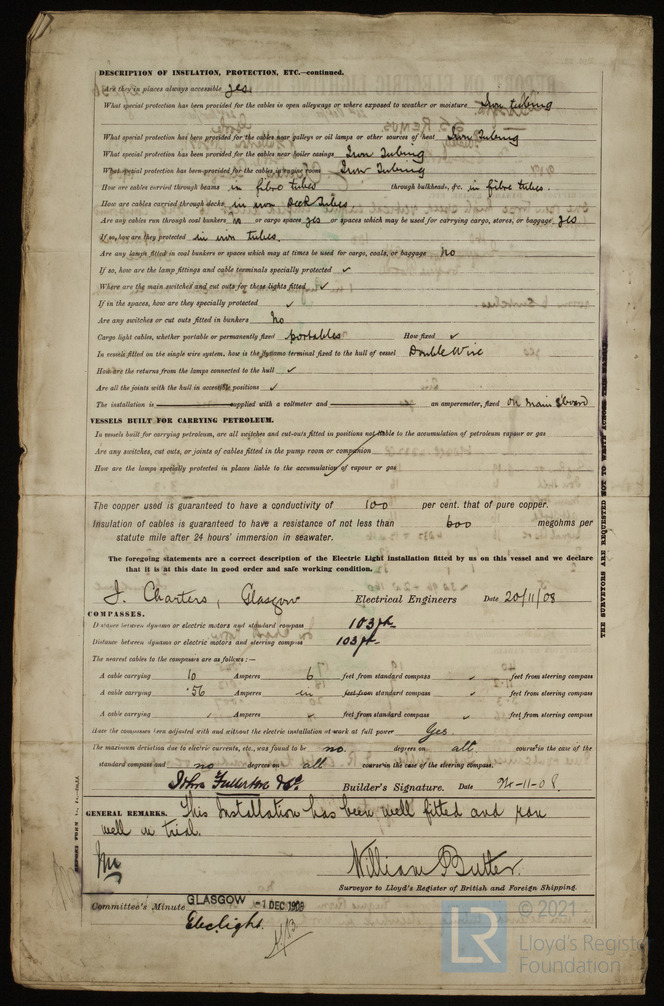 DESCRIPTION OF INSULATION, PROTECTION, ETC.—continued.
Are they in places always accessible yes
What special protection has been provided for the cables in open alleyways or where exposed to weather or moisture Iron tubing
What special protection has been provided for the cables near galleys or oil lamps or other sources of heat Iron Tubing
What special protection has been provided for the cables near boiler casings Iron Tubing
What special protection has been provided for the cables in engine room Iron Tubing
How are cables carried through beams in fibre tubes through bulkheads, &c. in fibre tubes.
How are cables carried through decks in iron Deck Tubes.
Are any cables run through coal bunkers or cargo spaces yes or spaces which may be used for carrying cargo, stores, or baggage yes
If so, how are they protected in iron tubes.
Are any lamps fitted in coal bunkers or spaces which may at times be used for cargo, coals, or baggage No
If so, how are the lamp fittings and cable terminals specially protected ✓
Where are the main switches and cut outs for these lights fitted ✓
If in the spaces, how are they specially protected ✓
Are any switches or cut outs fitted in bunkers No
Cargo light cables, whether portable or permanently fixed portables How fixed ✓
In vessels fitted on the single wire system, how is the dynamo terminal fixed to the hull of vessel Double Wire
How are the returns from the lamps connected to the hull ✓
Are all the joints with the hull in accessible positions ✓
The installation is supplied with a voltmeter and an amperemeter, fixed on Main S'board
VESSELS BUILT FOR CARRYING PETROLEUM.
In vessels built for carrying petroleum, are all switches and cut-outs fitted in positions not liable to the accumulation of petroleum vapour or gas
Are any switches, cut outs, or joints of cables fitted in the pump room or companion
How are the lamps specially protected in places liable to the accumulation of vapour or gas
The copper used is guaranteed to have a conductivity of 100 per cent. that of pure copper.
Insulation of cables is guaranteed to have a resistance of not less than 600 megohms per
statute mile after 24 hours' immersion in seawater.
The foregoing statements are a correct description of the Electric Light installation fitted by us on this vessel and we declare
that it is at this date in good order and safe working condition.
J. Charters, Glasgow Electrical Engineers Date 20/11/08
COMPASSES.
Distance between dynamo or electric motors and standard compass 103 ft
Distance between dynamo or electric motors and steering compass 103 ft
The nearest cables to the compasses are as follows:—
A cable carrying 10 Amperes 6 feet from standard compass ✓ feet from steering compass
A cable carrying ·56 Amperes in feet from standard compass ✓ feet from steering compass
A cable carrying Amperes ✓ feet from standard compass ✓ feet from steering compass
Have the compasses been adjusted with and without the electric installation at work at full power Yes.
The maximum deviation due to electric currents, etc., was found to be no. degrees on all. course in the case of the
standard compass and no degrees on all course in the case of the steering compass.
John Fullerton & Co Builder's Signature. Date -11-08
GENERAL REMARKS. This Installation has been well fitted and ran
well on trial.
William Butter.
Surveyor to Lloyd's Register of British and Foreign Shipping.
Committee's Minute GLASGOW -1 DEC. 1908
Elec. light.
THE SURVEYORS ARE REQUESTED NOT TO WRITE ACROSS THE
© 2021
LR
Lloyd's Register
Foundation